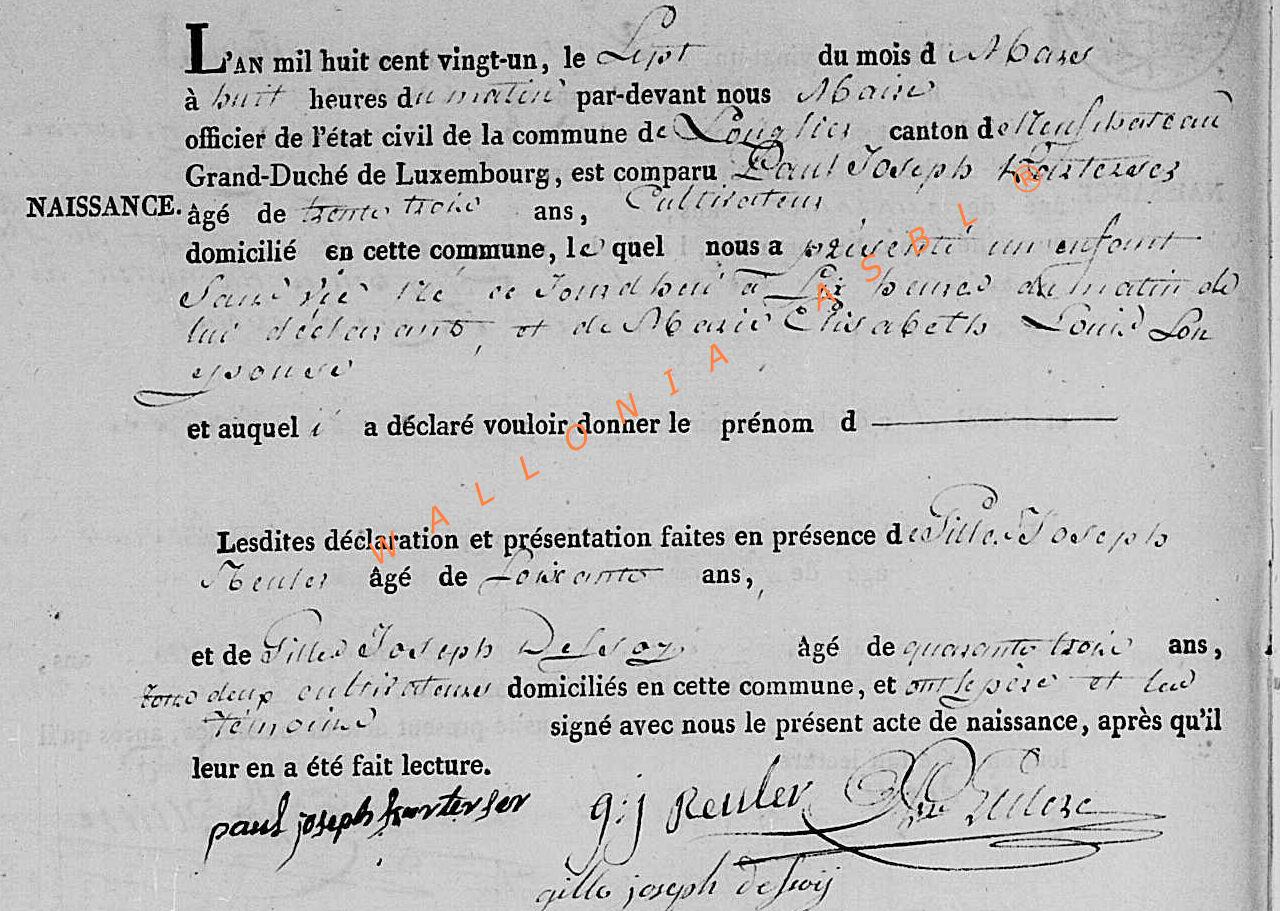 L'AN mil huit cent vingt-un, le Sept du mois de Mars
à huit heures du matin par-devant nous Maire
officier de l'état civil de la commune de Longlier canton de Neufchateau
Grand-Duché de Luxembourg, est comparu Paul Joseph
NAISSANCE. âgé de trente trois ans, Cultivateur
domicilié en cette commune, le quel nous a présenté un enfant
Sans vie né ce Jourdhui à Six heures du matin de
lui déclarant, et de Marie Elisabeth Louis Son
epouse
et auquel il a déclaré vouloir donner le prénom d
Lesdites déclaration et présentation faites en présence de Gille Joseph
Reuler âgé de Soixante ans,
et de Gille Joseph Defroy âgé de quarante trois ans,
tous deux cultivateurs domiciliés en cette commune, et ont le père et les
témoins signé avec nous le présent acte de naissance, après qu'il
leur en a été fait lecture.
paul joseph g:j Reuler
gille joseph
WALLONIA ASBL ®